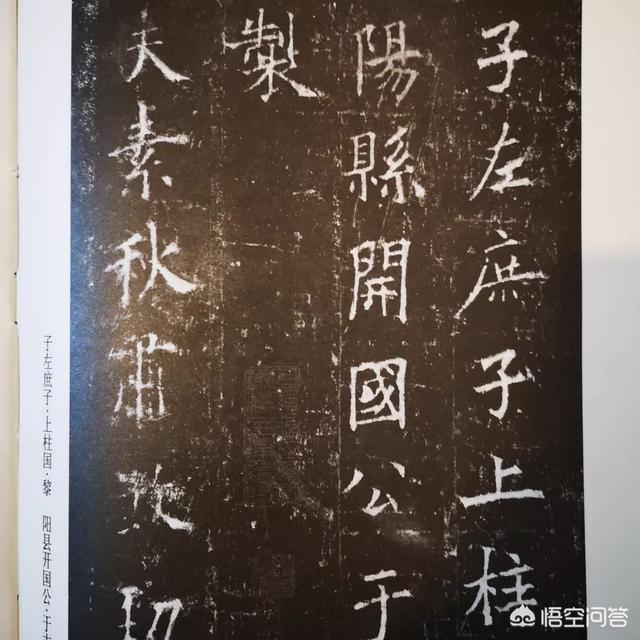 子左庶子上柱
陽縣開國公于
製
夫素秋肅
子左庶子·上柱国·黎 阳县开国公·于
悟空问答